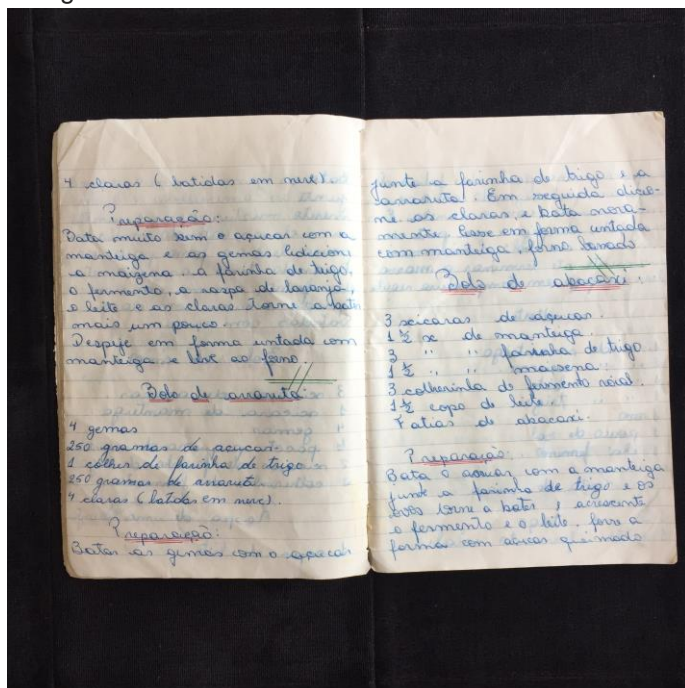 4 claras (batidas em neve)
Preparação:
Bata muito bem o açucar com a
manteiga e as gemas Adicione
a maizena, a farinha de trigo,
o fermento, a raspa de laranja,
o leite e as claras torne a bater
mais um pouco
Despeje em forma untada com
manteiga e leve ao forno.
Bolo de araruta
4 gemas
250 gramas de açucar
1 colher de farinha de trigo
250 gramas de araruta
4 claras (batidas em neve).
Preparação:
Bater as gemas com o açucar
junte a farinha de trigo e a
araruta. Em seguida
as claras, e bata nova-
mente, leve em forma untada
com manteiga, forno
Bolo de abacaxi.
3 xicaras de açucar.
1 ½ x de manteiga.
3 " " farinha de trigo
1 ½ " " maisena.
3 colherinha de fermento roial.
1 ½ copo de leite
7 fatias de abacaxi.
Preparação:
Bata o açucar com a manteiga
junte a farinha de trigo e os
ovos torne a bater, acrescente
o fermento e o leite. forre a
forma com açucar queimado